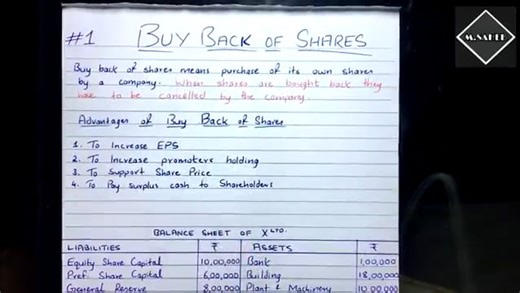 #1 BUY BACK OF SHARES
Buy back of shares means purchase of its own shares
by a company. When shares are bought back they
have to be cancelled by the company.
Advantages of Buy Back of Shares
1. To Increase EPS
2. To Increase promoters holding
3. To Support Share Price
4. To Pay surplus cash to Shareholders
BALANCE SHEET OF X LTD.
LIABILITIES ₹ ASSETS ₹
Equity Share Capital 10,00,000 Bank 1,00,000
Pref. Share Capital 6,00,000 Building 18,00,000
General Reserve 8,00,000 Plant & Machinery 10,00,000